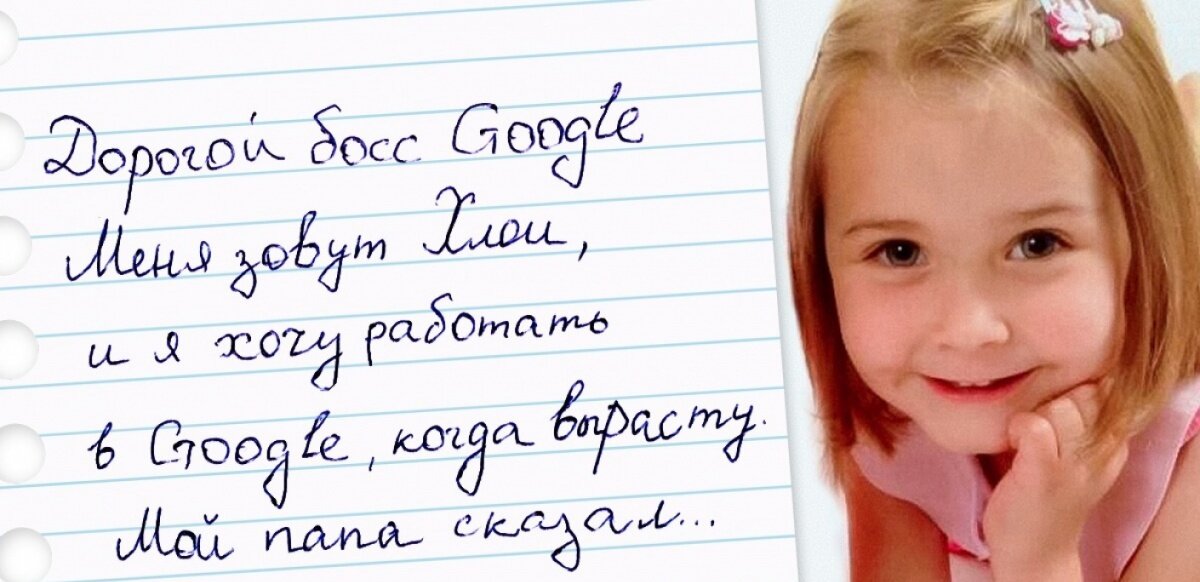 Дорогой босс Google
Меня зовут Хлои,
и я хочу работать
в Google, когда вырасту.
Мой папа сказал...